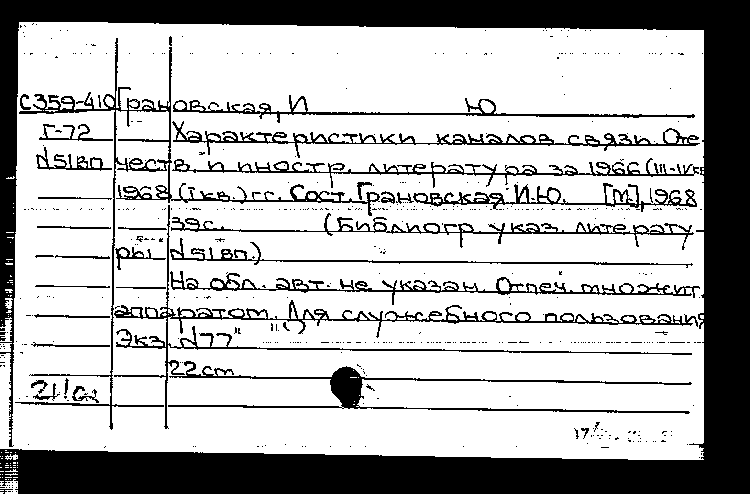 С359-410 Грановская, И Ю.
Г-72 Характеристики каналов связи. Оте-
N51вп честв. и иностр. литература за 1966 (III-IVкв
1968 (I кв.) гг. Сост. Грановская И.Ю. [М], 1968
39с. (Библиогр. указ. литерату-
ры N51вп.)
На обл. авт. не указан. Отпеч. множит.
аппаратом. Для служебного пользования
Экз. N77
22см